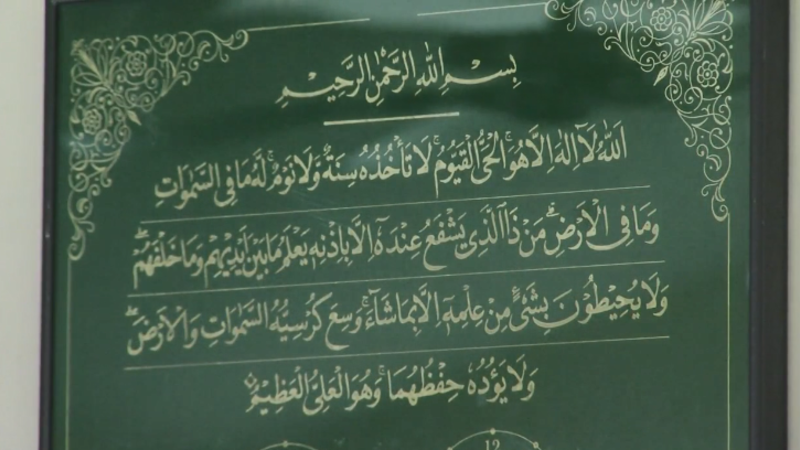 بِسْمِ اللهِ الرَّحْمٰنِ الرَّحِيْمِ
اَللهُ لَآ اِلٰهَ اِلَّا هُوَ ۚ اَلْحَيُّ الْقَيُّوْمُ ۚ لَا تَأْخُذُهٗ سِنَةٌ وَّلَا نَوْمٌ ؕ لَهٗ مَا فِى السَّمٰوٰتِ
وَمَا فِى الْاَرْضِ ؕ مَنْ ذَا الَّذِىْ يَشْفَعُ عِنْدَهٗٓ اِلَّا بِاِذْنِهٖ ؕ يَعْلَمُ مَا بَيْنَ اَيْدِيْهِمْ وَمَا خَلْفَهُمْ ۚ
وَلَا يُحِيْطُوْنَ بِشَىْءٍ مِّنْ عِلْمِهٖٓ اِلَّا بِمَا شَآءَ ۚ وَسِعَ كُرْسِيُّهُ السَّمٰوٰتِ وَالْاَرْضَ ۚ
وَلَا يَؤُدُهٗ حِفْظُهُمَا ۚ وَهُوَ الْعَلِىُّ الْعَظِيْمُ
12